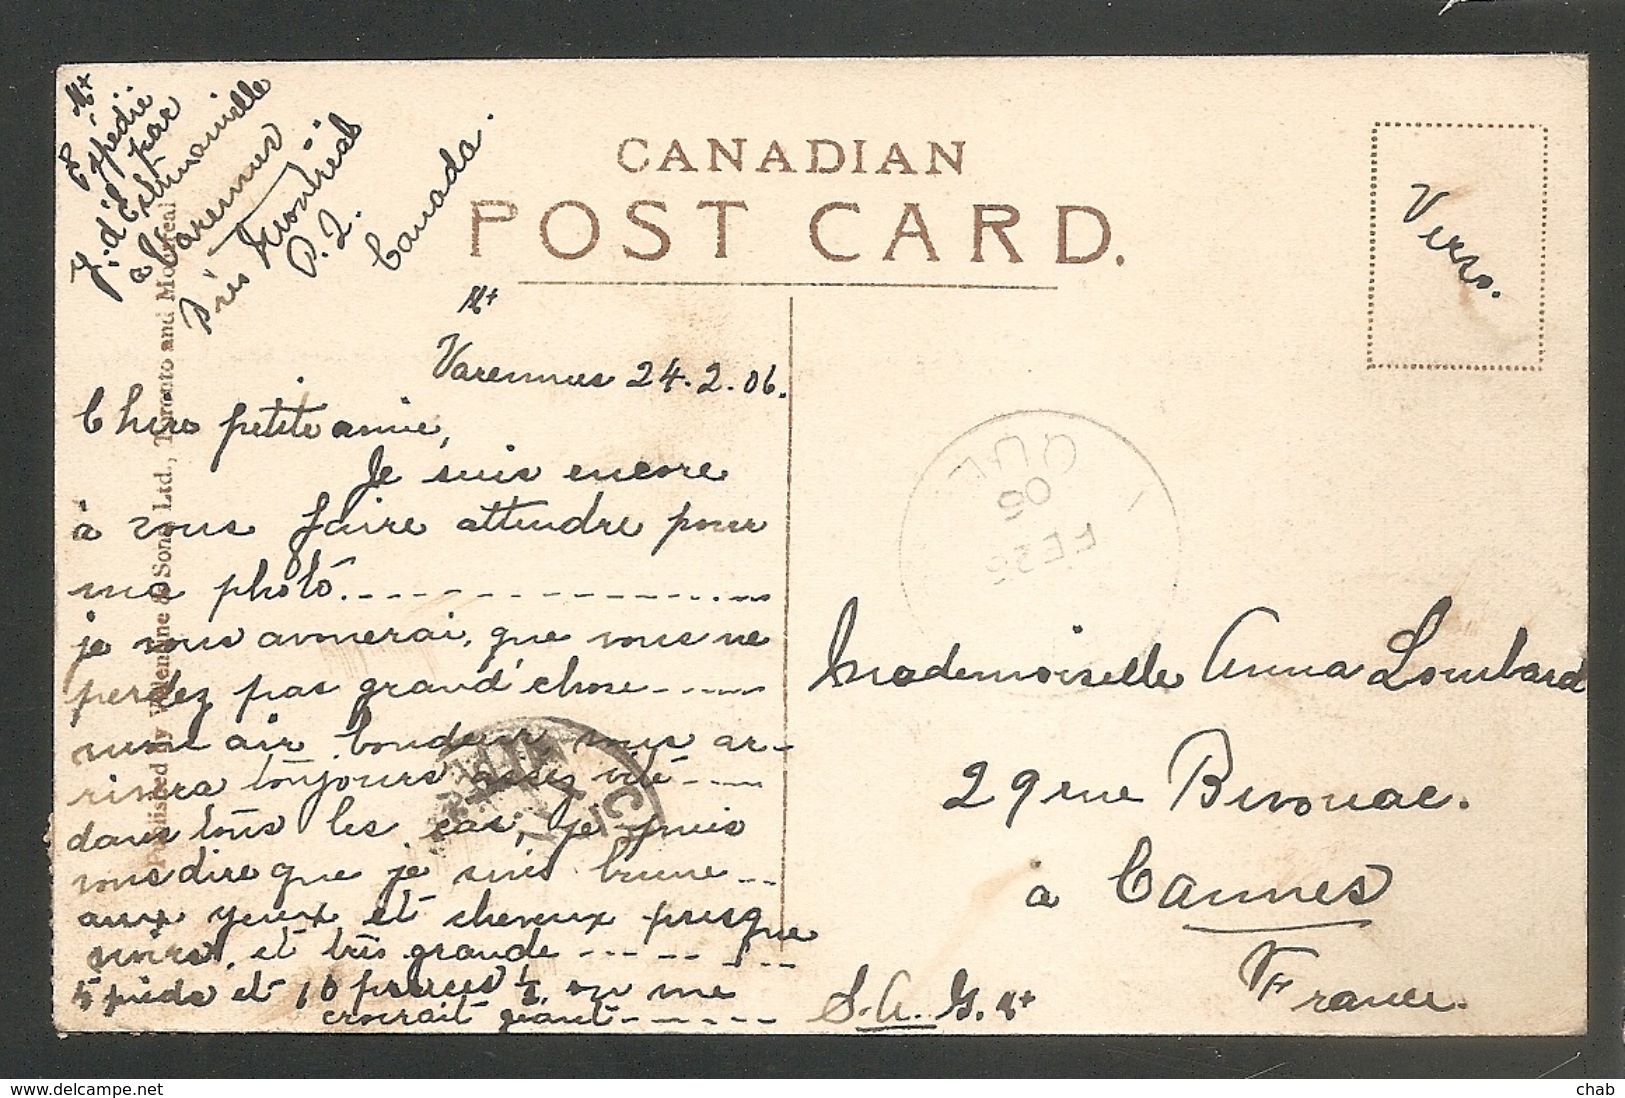 Expédié
par
J. d'Estimauville
à Varennes
Près Montréal
P. Q.
Canada.
CANADIAN
POST CARD.
Verso.
Published by Valentine & Sons, Ltd., Toronto and Montreal
Varennes 24.2.06.
Chère petite amie,
Je suis encore
à vous faire attendre pour
ma photo.
je vous avouerai, que vous ne
perdez pas grand'chose
mon air boudeur vous ar-
rivera toujours assez vite
dans tous les cas, je puis
vous dire que je suis brune
aux yeux et cheveux presque
noirs, et très grande
5 pieds et 10 pouces ½, on me
croirait géant
QUE
FE 26
06
Mademoiselle Anna Lombard
29 rue Bivouac.
à Cannes
France.
S.A.G.
delcampe.net
chab